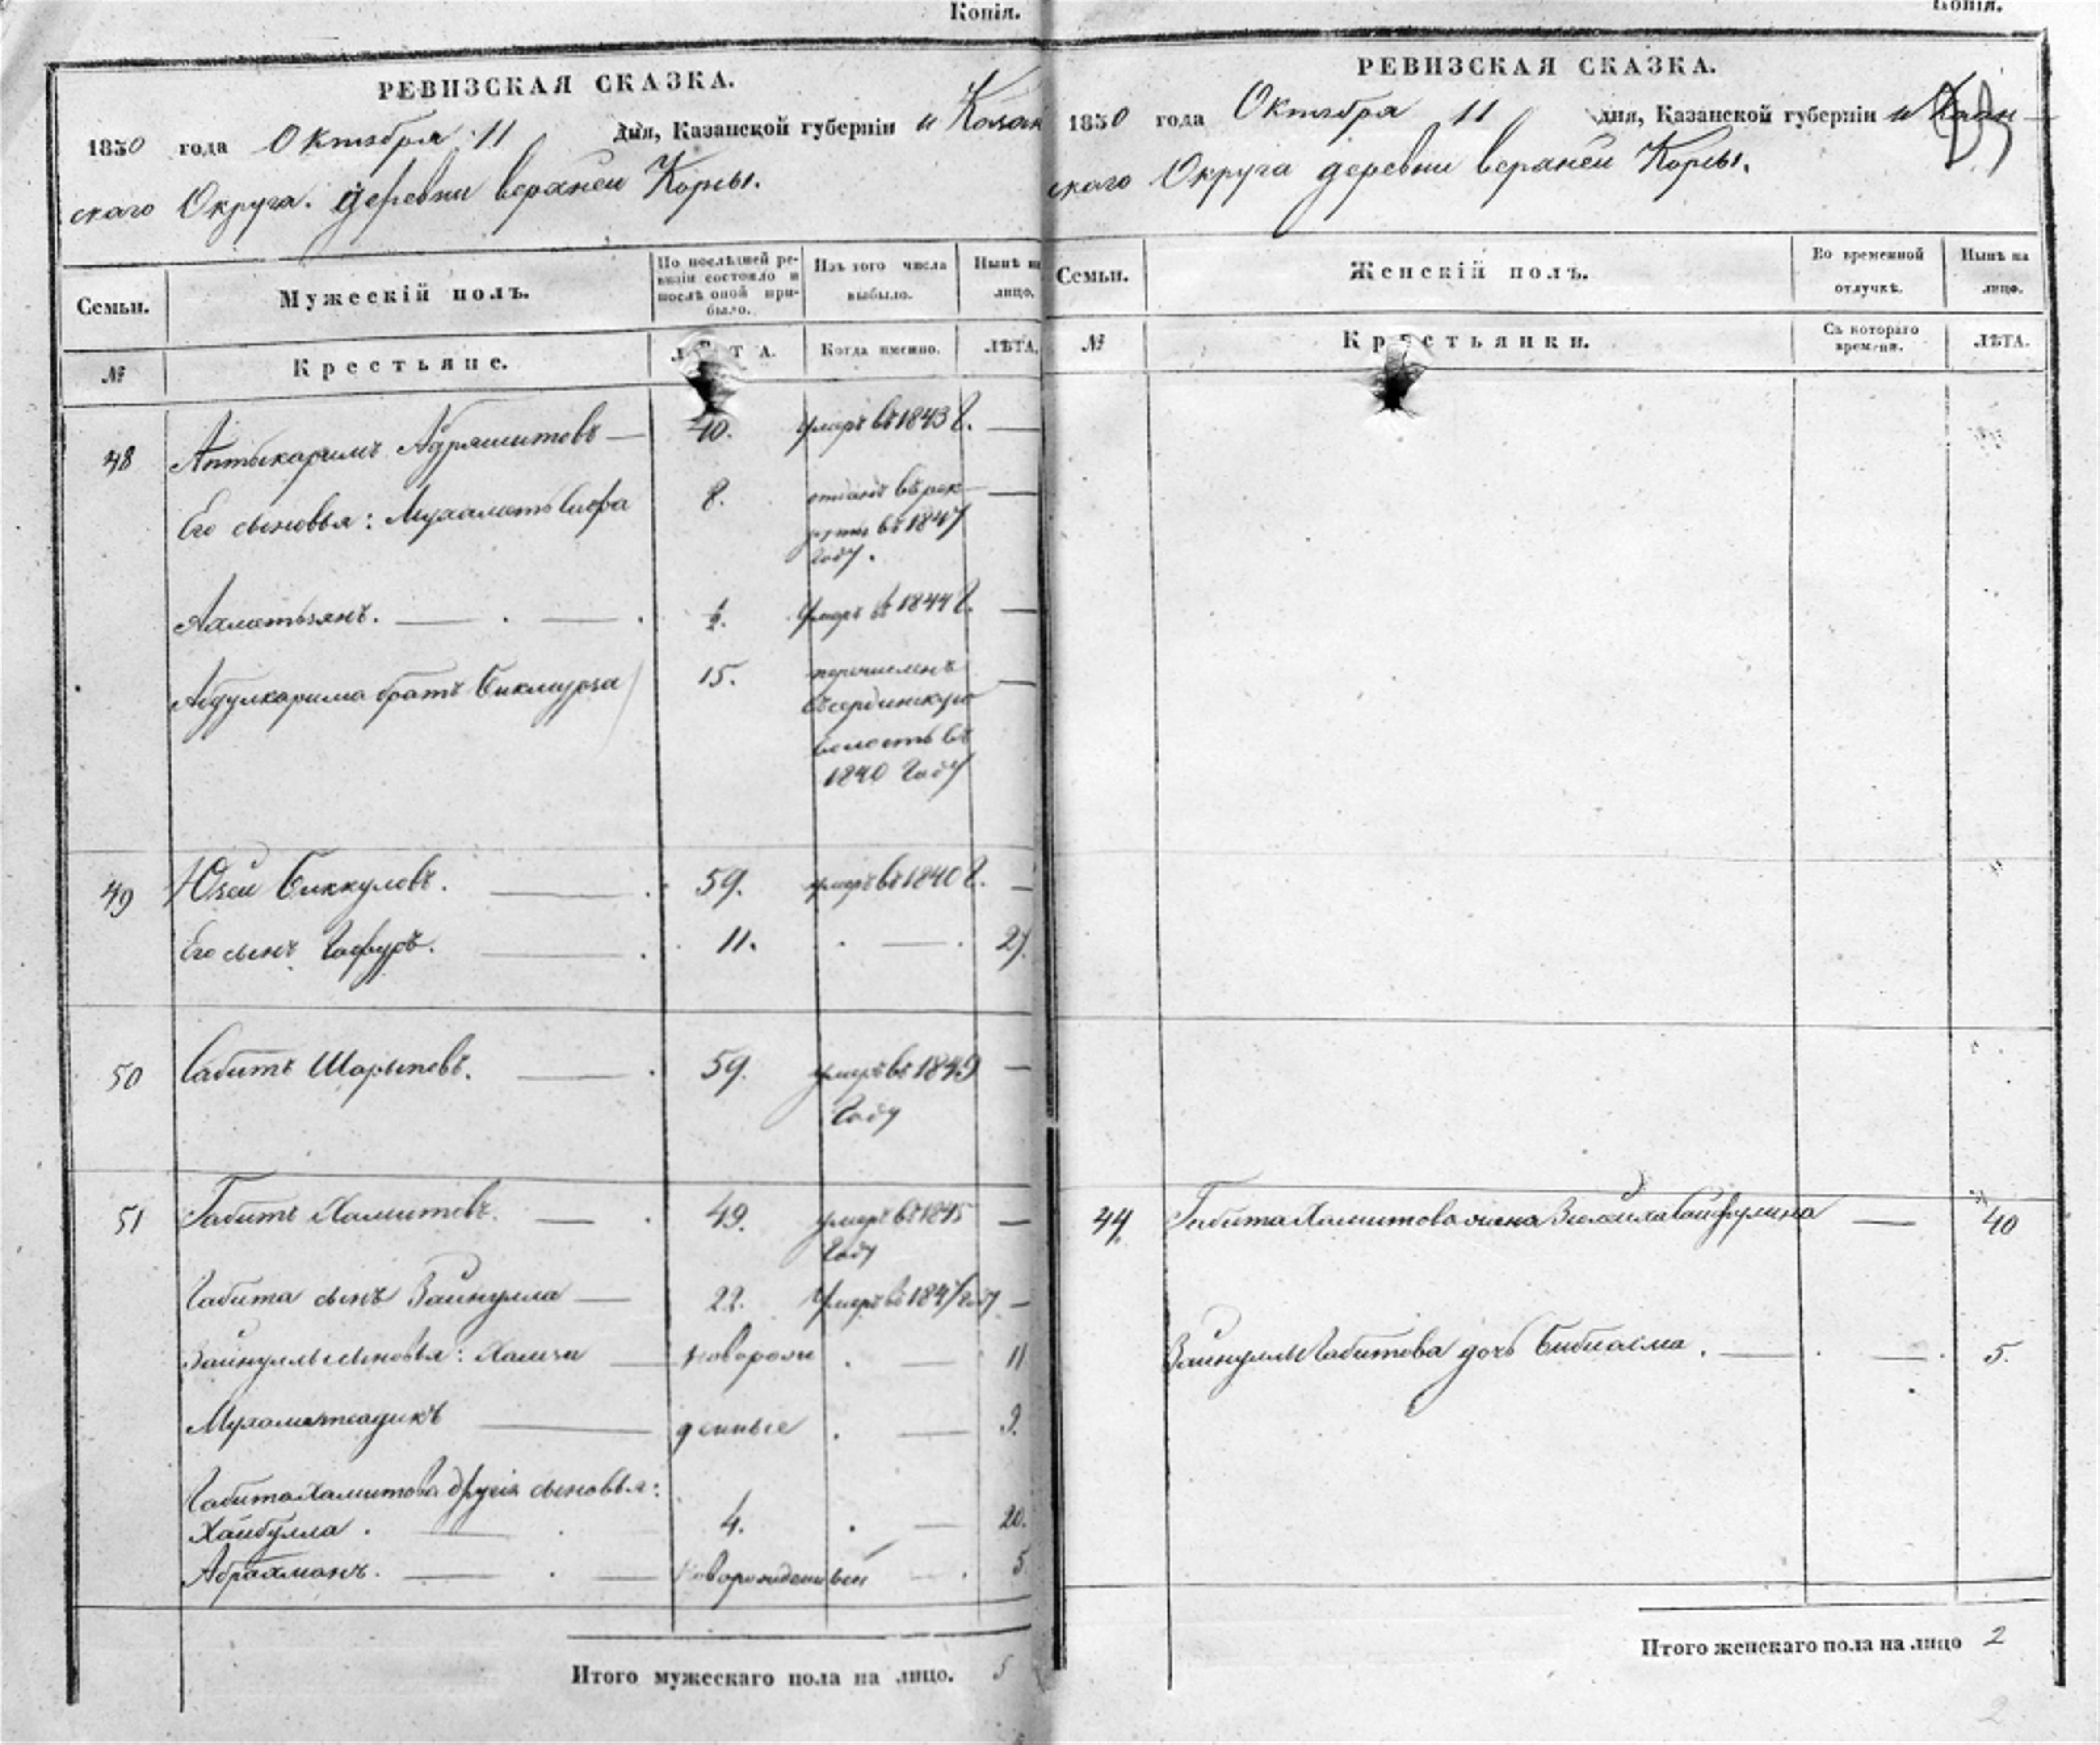 Копія.
РЕВИЗСКАЯ СКАЗКА.
1850 года Октября 11 дня, Казанской губерніи и Казан
скаго Округа. деревни верхней Корсы.
Семьи.
Мужескій полъ.
По послѣдней ре-
визіи состояло и
послѣ оной при-
было.
Изъ того числа
выбыло.
Нынѣ на
лицо.
№
Крестьяне.
Когда именно.
ЛѢТА.
48 Аптыкаримъ Абдрашитовъ — 40. умеръ въ 1843 г. —
Его сыновья: Мухаметъ Сафа 8. отданъ въ рек- —
руты въ 1847
году.
Ахметьянъ. — . — . ½. умеръ въ 1844 г. —
Абдулкарима братъ Бикмурза 15. перечисленъ —
волость въ
1840 году
49 Юзей Биккуловъ. — . 59. умеръ въ 1840 г. —
Его сынъ Гафуръ. — . 11. . — . 27.
50 Сабитъ Шарыповъ. — . 59. умеръ въ 1849 —
году
51 Габитъ Хамитовъ. — . 49. умеръ въ 1845 —
году
Габита сынъ Зайнулла — 22. умеръ въ 1847 году —
Зайнуллы сыновья: Хамза — новорож . — 11
Мухаметсадикъ — денные . — 9.
Габита Хамитова другія сыновья:
Хайбулла . — . 4. . — 20.
Абрахманъ. — . — новорожденный — . 5
Итого мужескаго пола на лицо. 5
Копія.
РЕВИЗСКАЯ СКАЗКА.
1850 года Октября 11 дня, Казанской губерніи и Казан
скаго Округа деревни верхней Корсы.
Семьи.
Женскій полъ.
Во временной
отлучкѣ.
Нынѣ на
лицо.
№
Крестьянки.
Съ котораго
времени.
ЛѢТА.
44. Габита Хамитова жена Сайфулина — 40
Зайнуллы Габитова дочь Бибиасма . — . — . 5.
Итого женскаго пола на лицо 2
2